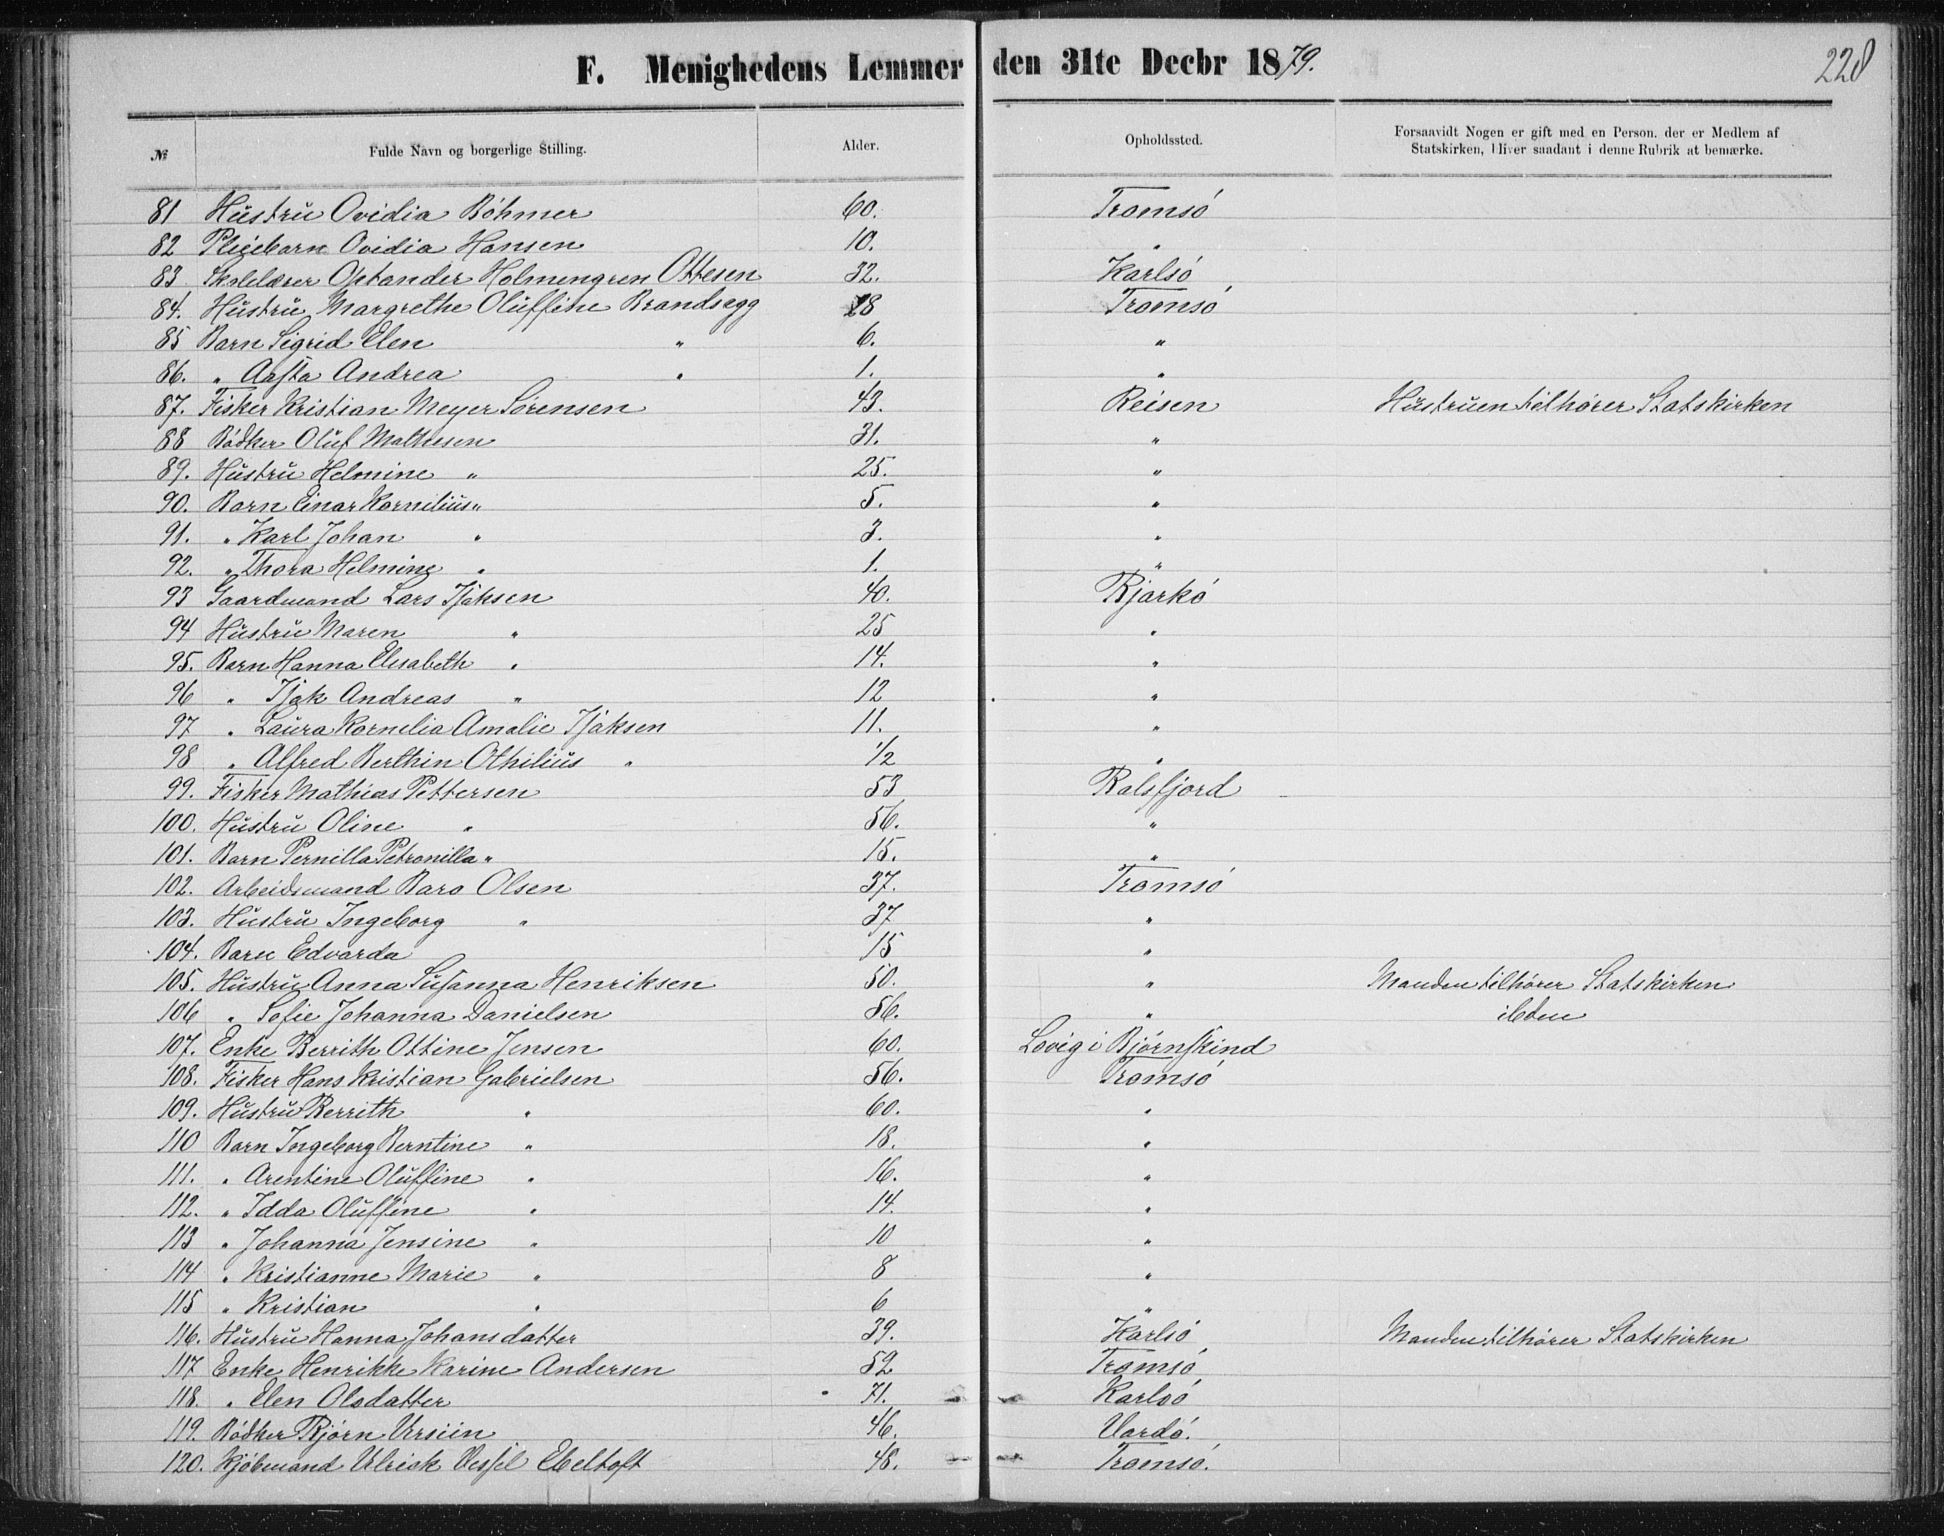 F. Menighedens Lemmer den 31te Decbr 1879.
228
№ Fulde Navn og borgerlige Stilling. Alder. Opholdssted. Forsaavidt Nogen er gift med en Person, der er Medlem af
Statskirken, bliver saadant i denne Rubrik at bemærke.
81 Hustru Ovidia Bøhmer 60. Tromsø
82 Pleiebarn Ovidia Hansen 10. "
83 Skolelærer Optander Holmengren Ottesen 32. Karlsø
84. Hustru Margrethe Oluffine Brandsegg 28 Tromsø
85 Barn Sigrid Elen " 6. "
86. " Aasta Andrea " 1. "
87. Fisker Kristian Meyer Sørensen 43. Reisen Hustruen tilhører Statskirken
88 Bødker Oluf Mathesen 31. "
89. Hustru Helmine " 25. "
90. Barn Einar Kornilius " 5. "
91. " Karl Johan " 3. "
92. " Thora Helmine " 1. "
93 Gaardmand Lars Isaksen 40. Bjarkø
94 Hustru Maren " 25 "
95. Barn Hanna Elisabeth " 14. "
96 " Isak Andreas " 12 "
97 " Laura Kornelia Amalie Isaksen 11. "
98 " Alfred Berthin Othilius " 1/2 "
99. Fisker Mathias Pettersen 53 Balsfjord
100. Hustru Oline " 56. "
101. Barn Pernilla Petronilla " 15. "
102. Arbeidsmand Baro Olsen 37. Tromsø
103. Hustru Ingeborg " 37 "
104. Barn Edvarda 15 "
105. Hustru Anna Susanna Henriksen 50. " Manden tilhører Statskirken
106 " Sofie Johanna Danielsen 56. " ibdm
107. Enke Berrith Ottine Jensen 60. Lovig i Bjørnskind
108. Fisker Hans Kristian Gabrielsen 56. Tromsø
109. Hustru Berrith " 60. "
110 Barn Ingeborg Berntine " 18. "
111. " Arentine Oluffine " 16. "
112. " Idda Oluffine " 14. "
113 " Johanna Jensine " 10 "
114 " Kristianne Marie " 8 "
115 " Kristian " 6 "
116. Hustru Hanna Johansdatter 39. Karlsø Manden tilhører Statskirken
117 Enke Henrikke Karine Andersen 52 Tromsø
118. " Elen Olsdatter 71. Karlsø
119. Bødker Bjørn Ursiin 46. Vardø.
120. Kjøbmand Ulrick Vessel Ebeltoft 48. Tromsø.